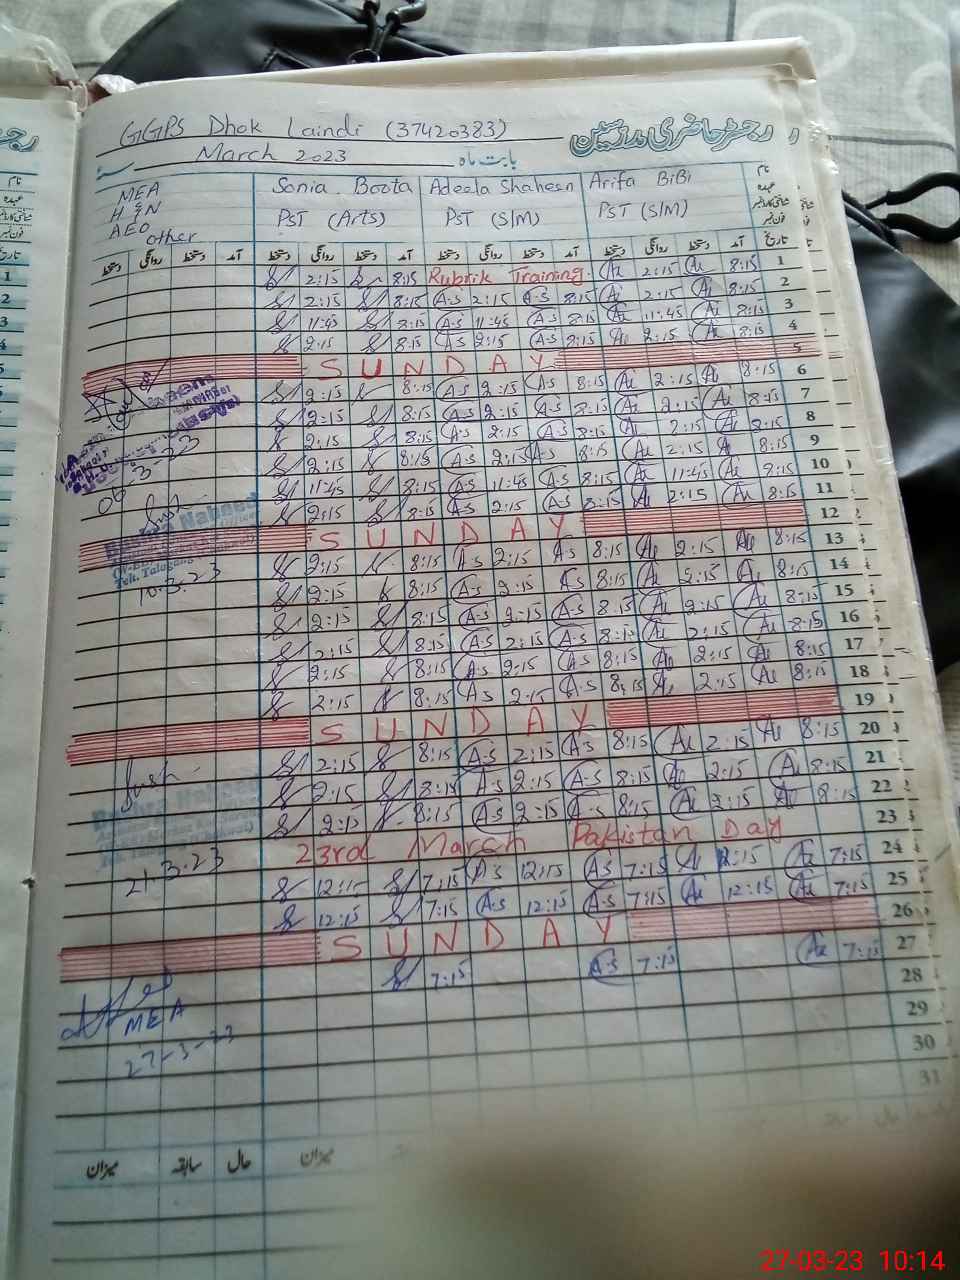 GGPS Dhok Laindi (37420383) رجسٹر حاضری مدرسین
March 2023 بابت ماہ
MEA Sonia Boota Adeela Shaheen Arifa BiBi نام
H & N PST (Arts) PST (S/M) PST (S/M) عہدہ
AEO
other
دستخط روانگی دستخط آمد دستخط روانگی دستخط آمد دستخط روانگی دستخط آمد دستخط روانگی دستخط آمد تاریخ
2:15 8:15 Rubrik Training 2:15 8:15 1
2:15 8:15 A-S 2:15 A-S 8:15 2:15 8:15 2
11:45 8:15 A-S 11:45 A-S 8:15 11:45 8:15 3
2:15 8:15 A-S 2:15 A-S 8:15 2:15 8:15 4
SUNDAY 5
2:15 8:15 A-S 2:15 A-S 8:15 2:15 8:15 6
2:15 8:15 A-S 2:15 A-S 8:15 2:15 8:15 7
2:15 8:15 A-S 2:15 A-S 8:15 2:15 8:15 8
2:15 8:15 A-S 2:15 A-S 8:15 2:15 8:15 9
11:45 8:15 A-S 11:45 A-S 8:15 11:45 8:15 10
2:15 8:15 A-S 2:15 A-S 8:15 2:15 8:15 11
SUNDAY 12
2:15 8:15 A-S 2:15 A-S 8:15 2:15 8:15 13
10.3.23 2:15 8:15 A-S 2:15 A-S 8:15 2:15 8:15 14
2:15 8:15 A-S 2:15 A-S 8:15 2:15 8:15 15
2:15 8:15 A-S 2:15 A-S 8:15 2:15 8:15 16
2:15 8:15 A-S 2:15 A-S 8:15 2:15 8:15 17
2:15 8:15 A-S 2:15 A-S 8:15 2:15 8:15 18
SUNDAY 19
2:15 8:15 A-S 2:15 A-S 8:15 2:15 8:15 20
2:15 8:15 A-S 2:15 A-S 8:15 2:15 8:15 21
2:15 8:15 A-S 2:15 A-S 8:15 2:15 8:15 22
23rd March Pakistan Day 23
21.3.23 12:15 7:15 A-S 12:15 A-S 7:15 12:15 7:15 24
12:15 7:15 A-S 12:15 A-S 7:15 12:15 7:15 25
SUNDAY 26
7:15 A-S 7:15 7:15 27
28
MEA 29
27-3-23 30
31
میزان سابقہ حال میزان
27-03-23 10:14